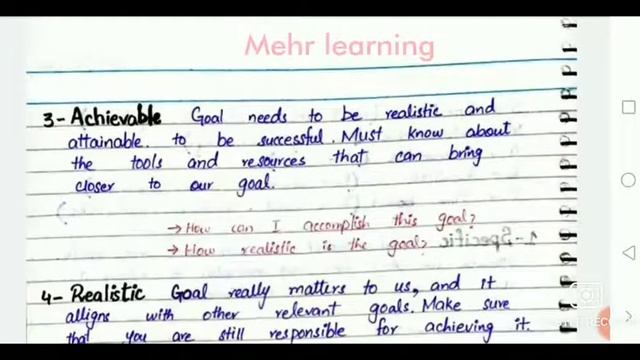 Mehr learning
3- Achievable Goal needs to be realistic and
attainable. to be successful. Must know about
the tools and resources that can bring
closer to our goal.
→ How can I accomplish this goal?
→ How realistic is the goal?
1-Specific
4- Realistic Goal really matters to us, and it
alligns with other relevant goals. Make sure
that you are still responsible for achieving it.